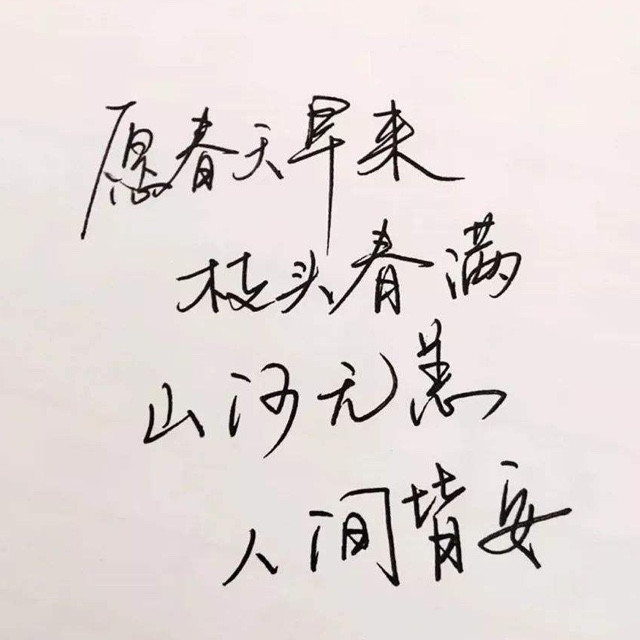 愿春天早来
枝头春满
山河无恙
人间皆安